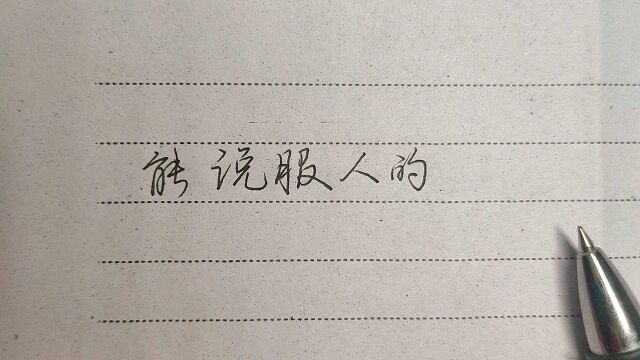 能说服人的